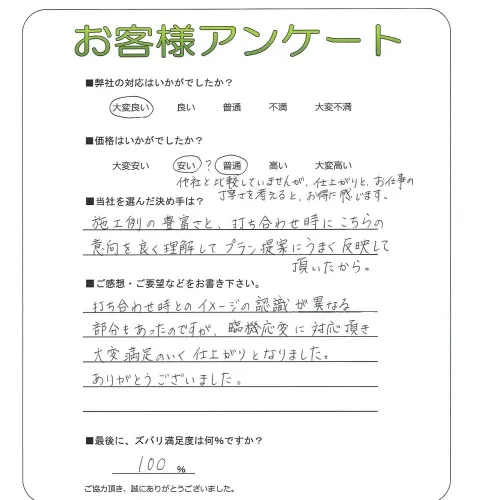 お客様アンケート
■弊社の対応はいかがでしたか？
大変良い 良い 普通 不満 大変不満
■価格はいかがでしたか？
大変安い 安い ? 普通 高い 大変高い
他社と比較していませんが、仕上がりと、お仕事の
丁寧さを考えると、お得に感じます。
■当社を選んだ決め手は？
施工例の豊富さと、打ち合わせ時にこちらの
意向を良く理解してプラン提案にうまく反映して
頂いたから。
■ご感想・ご要望などをお書き下さい。
打ち合わせ時とのイメージの認識が異なる
部分もあったのですが、臨機応変に対応頂き
大変満足のいく仕上がりとなりました。
ありがとうございました。
■最後に、ズバリ満足度は何%ですか？
100 %
ご協力頂き、誠にありがとうございました。